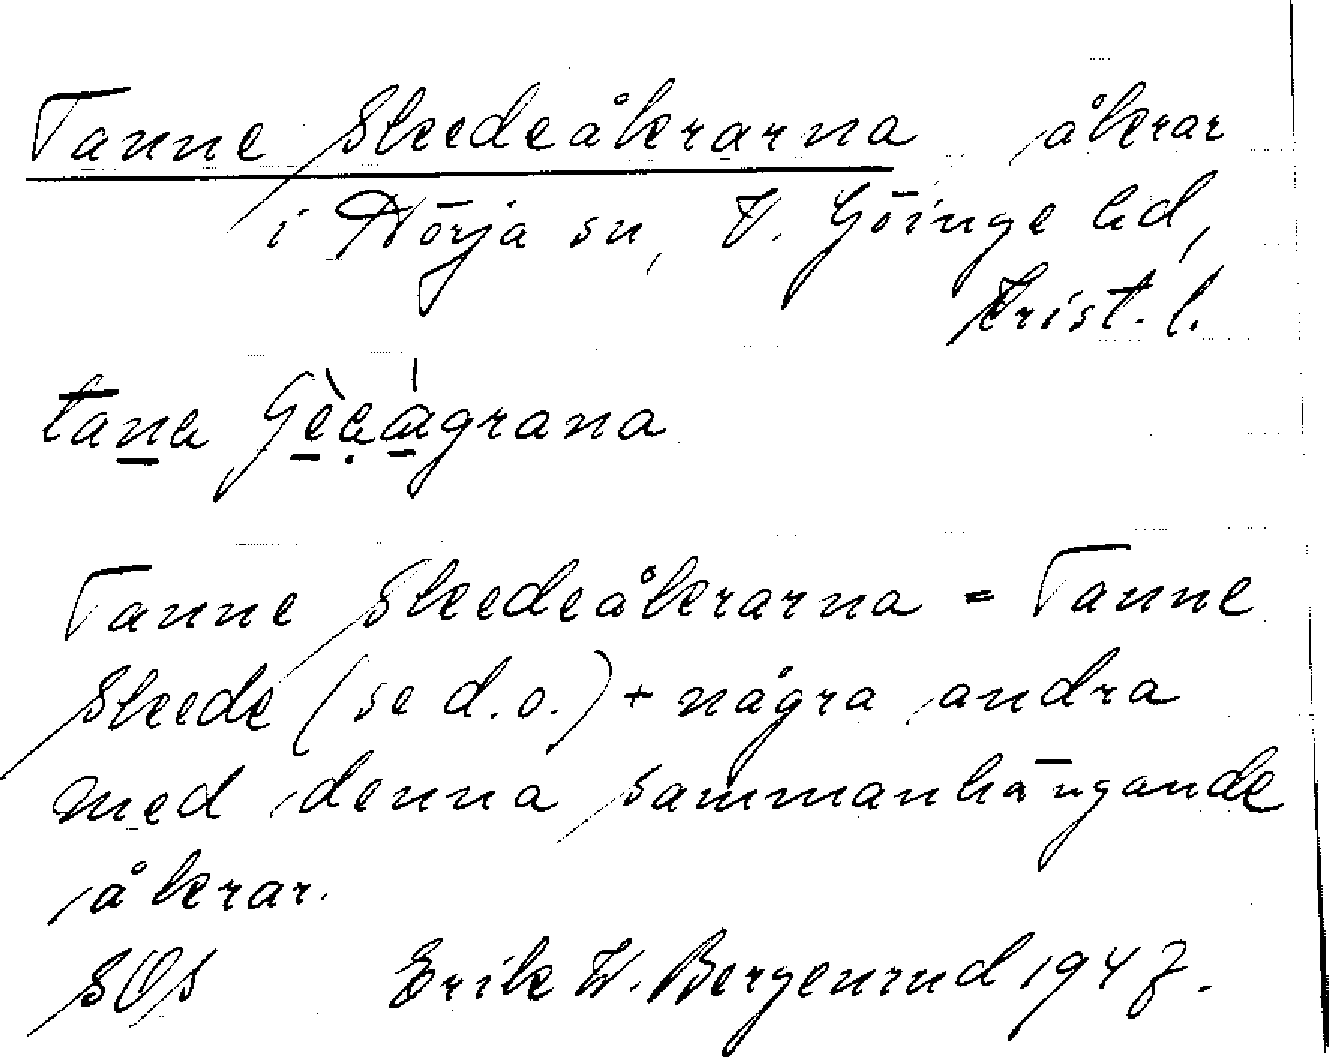 Tanne Skedeåkrarna åkrar
i Nörja sn, V. Göinge hd,
Krist. l.
Tanne Skedeåkrarna = Tanne
Skede (se d.o.) + några andra
med denna sammanhängande
åkrar.
SOS Erik W. Bergenrud 1947.